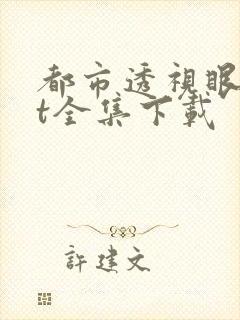 都市透視眼
t全集下載
許建文